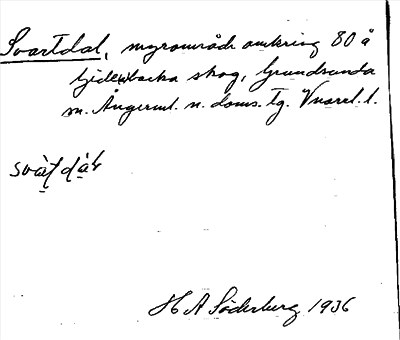 Svartdal, myrområde omkring 80 å
Gideåbacka skog, Grundsunda
sn. Ångerml. n. doms. tg. Vnorrl. l.
H A Söderberg 1936